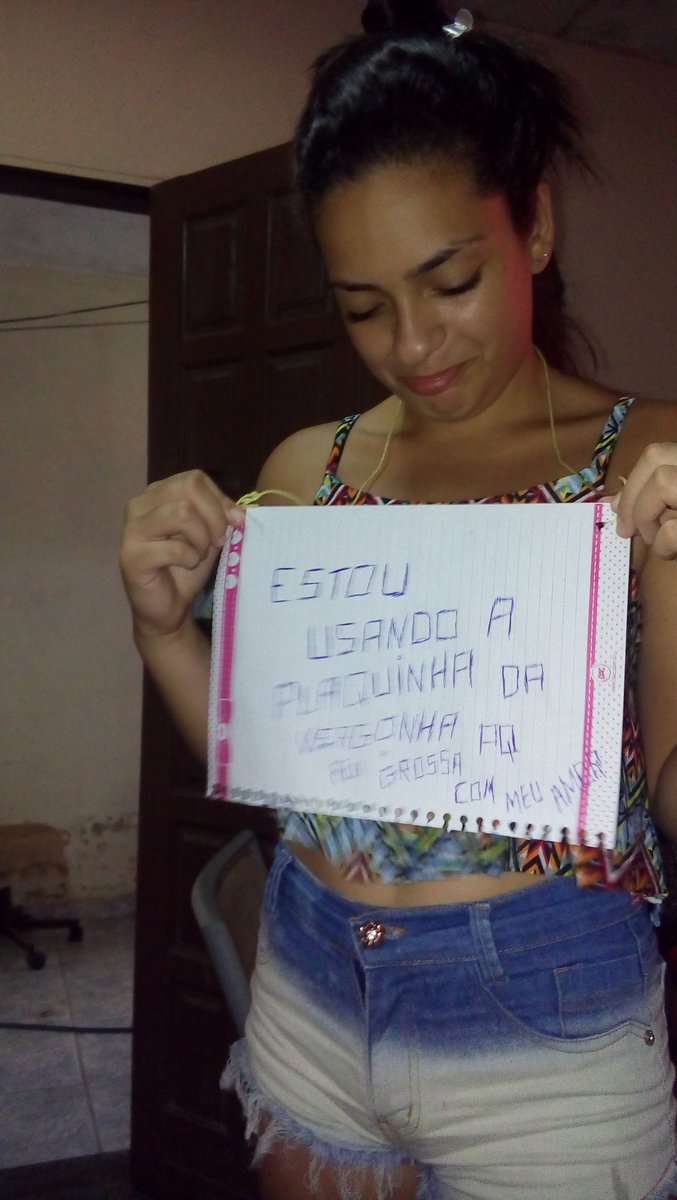 ESTOU
USANDO A
PLAQUINHA DA
VERGONHA PQ
FUI GROSSA
COM MEU AMOR!